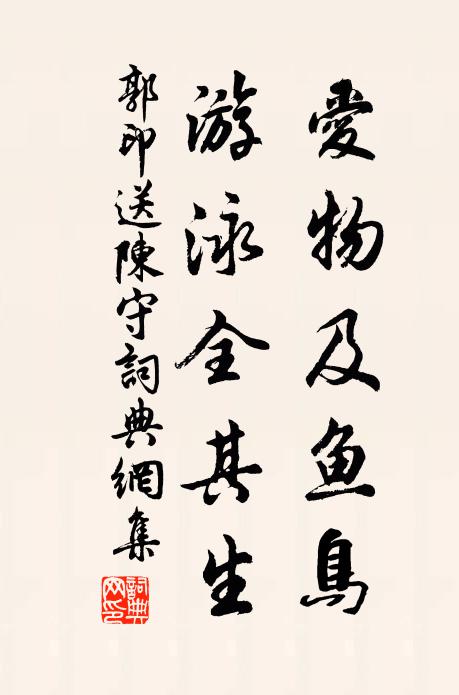 愛物及鱼鳥
游泳全其生
郭印送陳守詞典網集
詞典网印